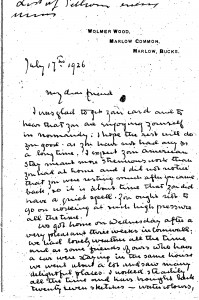 WOLMER WOOD,
MARLOW COMMON,
MARLOW, BUCKS.
July 17th 1926
My dear friend
I was glad to get your card and to
hear that you are enjoying yourself
in Normandy; I hope the rest will do
you good - as you have not had any for
a long time. I expect your American
stay meant more strenuous work than
you had at home and I did not notice
that you were resting much after you came
back, so it is about time that you did
have a quiet spell. You ought not to
go on working at such high pressure
all the time.
We got home on Wednesday after a
very pleasant three weeks in Cornwall.
We had lovely weather all the time
and as some friends of ours who have
a car were staying in the same house
we went about a lot and saw many
delightful places. I worked steadily
all the time and have brought back
twenty seven sketches - watercolours,